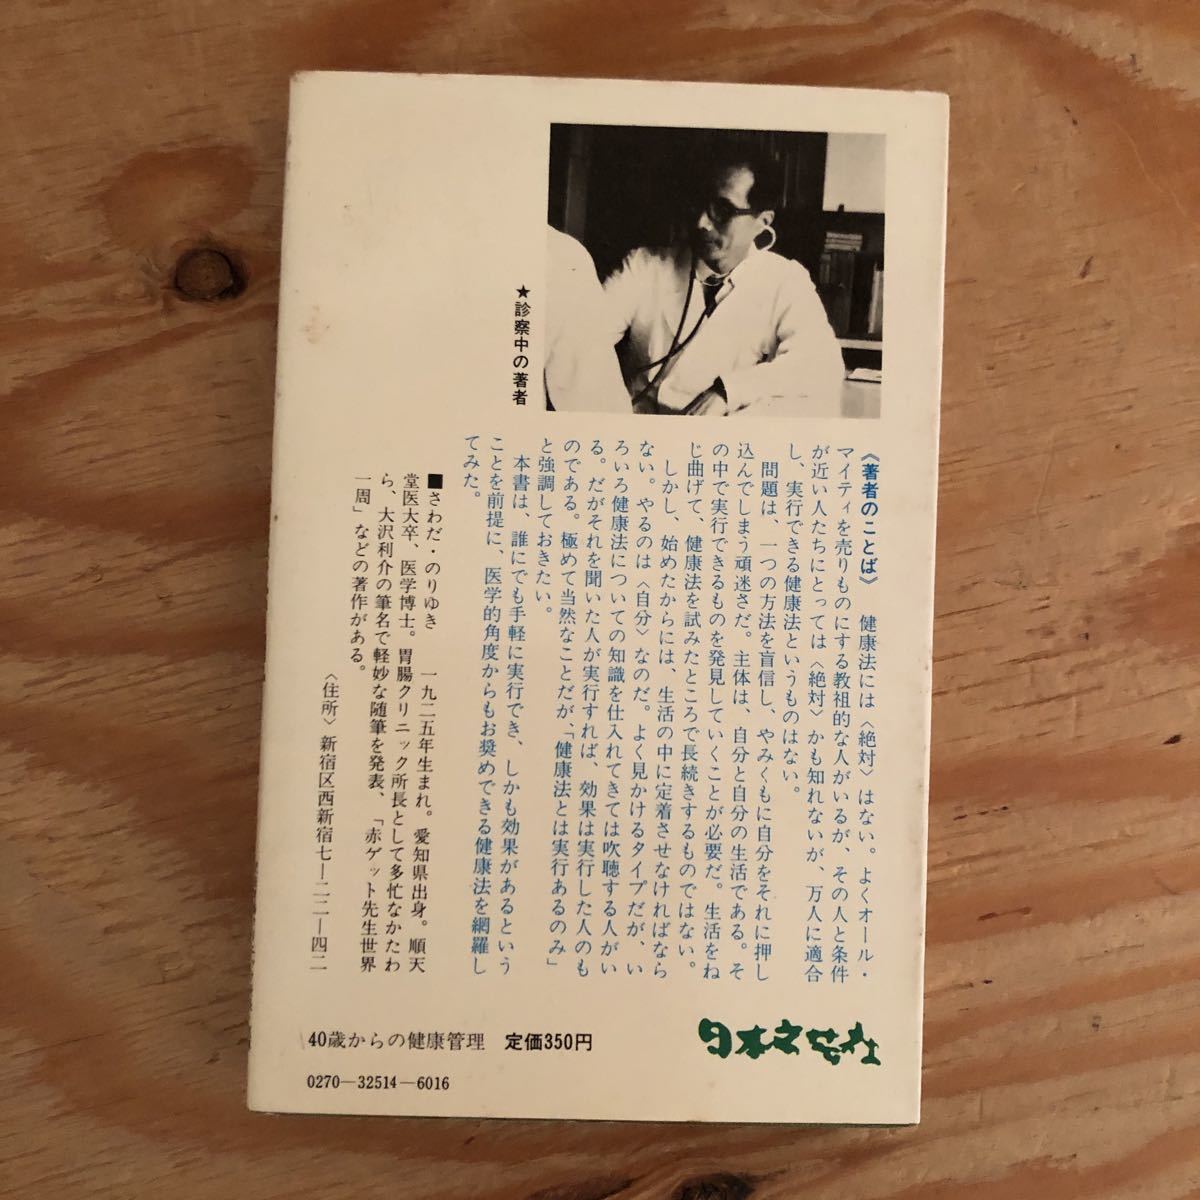 ★診察中の著者
《著者のことば》 健康法には〈絶対〉はない。よくオール・
マイティを売りものにする教祖的な人がいるが、その人と条件
が近い人たちにとっては〈絶対〉かも知れないが、万人に適合
し、実行できる健康法というものはない。
問題は、一つの方法を盲信し、やみくもに自分をそれに押し
込んでしまう頑迷さだ。主体は、自分と自分の生活である。そ
の中で実行できるものを発見していくことが必要だ。生活をね
じ曲げて、健康法を試みたところで長続きするものではない。
しかし、始めたからには、生活の中に定着させなければなら
ない。やるのは〈自分〉なのだ。よく見かけるタイプだが、い
ろいろ健康法についての知識を仕入れてきては吹聴する人がい
る。だがそれを聞いた人が実行すれば、効果は実行した人のも
のである。極めて当然なことだが、「健康法とは実行あるのみ」
と強調しておきたい。
本書は、誰にでも手軽に実行でき、しかも効果があるという
ことを前提に、医学的角度からもお奨めできる健康法を網羅し
てみた。
■さわだ・のりゆき 一九二五年生まれ。愛知県出身。順天
堂医大卒、医学博士。胃腸クリニック所長として多忙なかたわ
ら、大沢利介の筆名で軽妙な随筆を発表、「赤ゲット先生世界
一周」などの著作がある。
〈住所〉新宿区西新宿七―二二―四二
40歳からの健康管理 定価350円
日本文芸社
0270―32514―6016